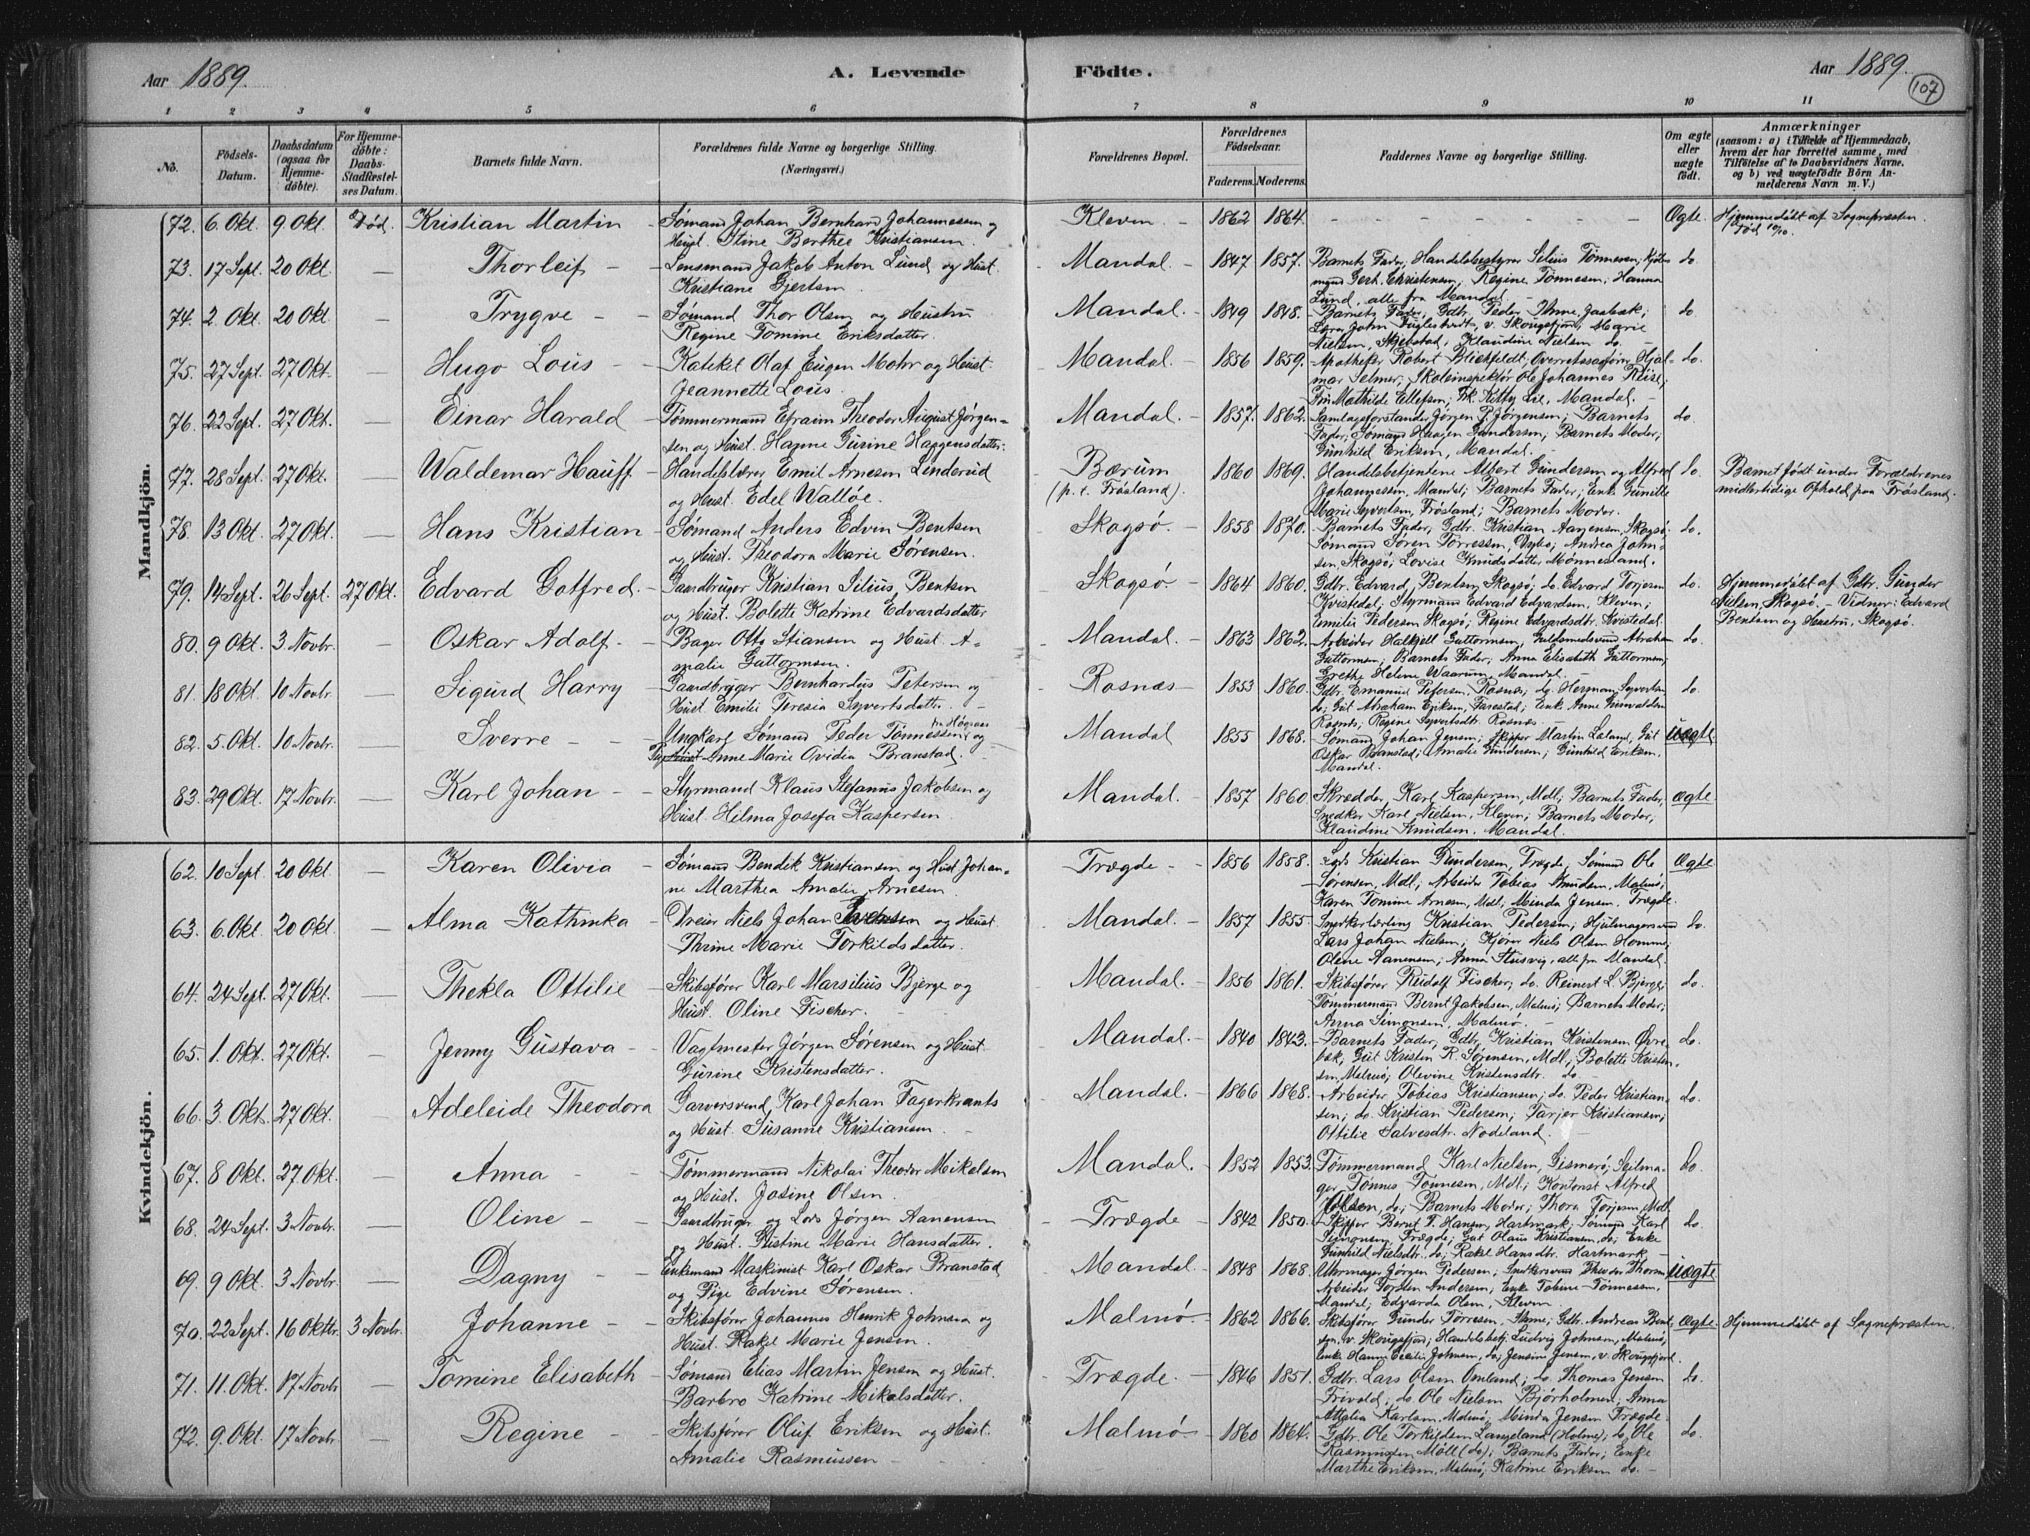 Aar 1889. A. Levende Födte. Aar 1889.
107
1 2 3 4 5 6 7 8 9 10 11
No. Födsels-Datum. Daabsdatum (ogsaa for Hjemme-döbte). For Hjemme-döbte: Daabs-Stadfæstel-ses Datum. Barnets fulde Navn. Forældrenes fulde Navne og borgerlige Stilling. (Næringsvei.) Forældrenes Bopæl. Forældrenes Födselsaar. Faderens. Moderens. Faddernes Navne og borgerlige Stilling. Om ægte eller uægte födt. Anmærkninger (saasom: a) i Tilfælde af Hjemmedaab, hvem der har forrettet samme, med Tilföielse af to Daabsvidners Navne. og b) ved uægtefödte Börn An-melderens Navn m. V.)
Mandkjön.
72. 6 Okt. 9 Okt. Död. Kristian Martin - Sømand Johan Bernhard Johannesen og Kleven - 1862 1864. Ægte. Hjemmedøbt af Sognepræsten.
Hust. Stine Berthee Kristiansen. Død 10/10.
73. 17 Sept. 20 Okt. - Thorleif - Lensmand Jakob Anton Lund og Hust. Mandal. - 1847 1857. Barnets Fader, Handelsbestyrer Silius Tønnesen, do.
Kristiane Gjertsen. Gerh. Christensen, Regine Tønnesen, Hanna
Lund, alle fra Mandal.
74. 2 Okt. 20 Okt. - Trygve - Sømand Thor Olsen og Hustru Mandal. - 1849 1848. Barnets Fader, Gdbr. Peder do.
Regine Tomine Eriksdatter. v. Skougsfjord, Marie
Nielsen, Klaudine Nielsen do.
75. 27 Sept. 27 Okt. - Hugo Lous - Katekel Olaf Eugen Mohr og Hust. Mandal. - 1856 1859. Apotheker Robert Blichfeldt, Overretssagfører Hjal- do.
Jeannette Lous. mar Selmer, Skoleinspektør Ole Johannes Riise,
Fru Mathilde Ellefsen, Frk. Kitty Lie, Mandal.
76. 22 Sept. 27 Okt. - Einar Harald Tømmermand Efraim Theodor August Jørgen- Mandal. - 1857. 1862. Samlagsforstander Jørgen P. Jørgensen; Barnets do.
sen og Hust. Hanne Gurine Haagensdatter. Fader; Sømand Haagen Gundersen; Barnets Moder;
Gunhild Eriksen, Mandal.
77. 28 Sept. 27 Okt. - Waldemar Hauff - Handelslærer Emil Arnesen Linderud Bærum 1860 1869. Handelsbetjentene Albert Gundersen og Alfred do. Barnet født under Forældrenes
og Hust. Edel Walløe. (p. t. Frøsland). Johannessen, Mandal; Barnets Fader; Enke Gunille midlertidige Ophold paa Frøsland.
Marie Syvertsen, Frøsland; Barnets Moder.
78. 13 Okt. 27 Okt. - Hans Kristian - Sømand Anders Edvin Bentsen Skogsø. - 1858 1870. Barnets Fader, Gdbr. Kristian Aanensen, Skogsø do.
og Hust. Theodora Marie Sørensen. Sømand Søren Torressen, Andrea John-
sen Skogsø, Lovise Knudsdatter Mønnesland.
79. 14 Sept. 26 Sept. 27 Okt. Edvard Gotfred. - Gaardbruger Kristian Silius Bentsen Skogsø - 1864 1860. Gdbr. Edvard Bentsen Skogsø; do. Edvard Torjesen do. Hjemmedøbt af Gdbr. Gunder
og Hust. Bolette Katrine Edvardsdatter Kvistedal; Styrmand Edvard Edvardsen, Kleven; Nielsen, Skogsø. - Vidner: Edvard
Emilie Pedersen Skogsø; Regine Edvardsdtr. Kvistedal. Bentsen og Hustru, Skogsø.
80. 9 Okt. 3 Novbr. - Oskar Adolf. - Bager Otto Stiansen og Hust. A- Mandal. - 1863 1862. Arbeider Halkjell Guttormsen, Guldsmedsvend Abraham do.
malie Guttormsen. Guttormsen; Barnets Fader; Anna Elisabeth Guttormsen;
Grethe Helene Waarum, Mandal.
81. 18 Okt. 10 Novbr. - Sigurd Harry Gaardbruger Bernhardus Petersen og Rosnæs - 1853 1860. Gdbr. Emanuel Petersen, Rosnæs; do. Herman Syvertsen do.
Hust. Emilie Teresia Syvertsdatter. do; Gut Abraham Eriksen, Farestad; Enke Anne
Rosnæs; Regine Syvertsdtr. Rosnæs.
82. 5. Okt. 10 Novbr. - Sverre - Ungkarl Sømand Peder Tønnessen og Mandal - 1855 1868. Sømand Johan Jensen; Martin Laland, Gut Uægte
Pige Anne Marie Ovidia Branstad. Oskar Branstad; Amalie Gundersen; Gunhild Eriksen.
Mandal.
83. 29 Okt. 17 Novbr. - Karl Johan - Styrmand Klaus Stefanus Jakobsen og Mandal. - 1857 1860 Skrædder Karl Kaspersen, Mdl; Barnets Fader; Ægte
Hust. Hilma Josefa Kaspersen. Snedker Karl Nielsen, Kleven; Barnets Moder;
Klaudine Knudsen, Mandal.
Kvindekjön.
62. 10 Sept. 20 Okt. - Karen Olivia - Sømand Bendik Kristiansen og Hust. Johan- Trægde - 1856 1858. Kristian Gundersen, Trægde, Sømand Ole Ægte
ne Marthea Amalie Arnesen. Sørensen, Mdl; Arbeider Tobias Knudsen, Malmø;
Karen Tomine Arnesen, Mdl; Minda Jensen, Trægde.
63. 6. Okt. 20 Okt. - Alma Kathinka - Dreier Niels Johan og Hust. Mandal. - 1857 1855. Snedkerlærling Kristian Pedersen; Hjulmagersvend do.
Thrine Marie Torkildsdatter. Lars Johan Nielsen; Niels Olsen Homme;
Olene Aanensen; Anna Stusvig, alle fra Mandal.
64. 24 Sept. 27 Okt. - Thekla Ottilie - Skibsfører Karl Marsilius Bjerge og Mandal. - 1856 1861. Skibsfører Rudolf Fischer; do. Reinert L. Bjerge; do.
Hust. Oline Fischer. Tømmermand Bernt Jakobsen, Malmø; Barnets Moder;
Anna Simonsen, Malmø.
65. 1. Okt. 27 Okt. - Jenny Gustava - Vagtmester Jørgen Sørensen og Hust. Mandal. - 1840 1843. Barnets Fader, Gdbr. Kristian Kristensen Øvre- do.
Gurine Kristensdatter. bøk, Gut Kristen R. Sørensen, Mdl; Bolette Kristen-
sen, Malmø; Olevine Kristensdtr. do.
66. 3. Okt. 27 Okt. - Adeleide Theodora Garversvend Karl Johan Fagerkrants Mandal. - 1866 1868. Arbeider Tobias Kristiansen; do. Peder Kristian- do.
og Hust. Susanne Kristiansen. sen; do. Kristian Pedersen; Tarjer Kristiansen;
Ottilie Salvesdtr. Nodeland.
67. 8 Okt. 27 Okt. - Anna - Tømmermand Nikolai Theodor Mikelsen Mandal. - 1852 1853. Tømmermand Karl Nielsen, Gismerø; Seilma- do.
og Hust. Josine Olsen. ger Tønnes Tønnesen, Mdl; Kontorist Alfred
Olsen, do; Barnets Moder; Thora Torjesen Mdl.
68. 24 Sept. 3 Novbr. - Oline - Gaardbruger og Lods Jørgen Aanensen Trægde - 1842 1850. Skipper Bernt T. Hansen, Hartmark; Sømand Karl do.
og Hust. Gustine Marie Hansdatter. Simonsen, Trægde; Gut Olaus Kristiansen, do; Enke
Gunhild Nielsdtr. do; Rakel Hansdtr. Hartmark.
69. 9 Okt. 3 Novbr. - Dagny - Enkemand Maskinist Karl Oskar Branstad Mandal - 1848 1868. Uhrmager Jørgen Pedersen; Snedkersvend Theodor Thorsen Uægte
og Pige Edvine Sørensen. Arbeider Torsten Andersen; Enke Tobine Tønnessen,
Mandal; Edvarda Olsen, Kleven
70. 22 Sept. 16 Oktbr. 3 Novbr. Johanne - Skibsfører Johannes Henrik Johnsen og Malmø - 1862 1866. Skibsfører Gunder Torresen, Gdbr. Andreas Bent Ægte Hjemmedøbt af Sognepræsten.
Hust. Rakel Marie Jensen. sen v. Skougsfjord; Handelsbetj. Ludvig Johnsen, Malmø;
Enke Hanne Cecilie Johnsen, do; Jensine Jensen, v. Skougsfjord.
71. 11. Okt. 17 Novbr - Tomine Elisabeth Sømand Elias Martin Jensen og Hust. Trægde. - 1846 1851. Gdbr. Lars Olsen Omland; do. Thomas Jensen do.
Barbro Katrine Mikalsdatter. Frivold; do. Ole Nielsen Bjørholmen; Anna
Attalia Karlsen, Malmø, Minda Jensen Trægde.
72. 9. Okt. 17 Novbr. - Regine - Skibsfører Oluf Eriksen og Hust. Malmø - 1860 1864. Gdbr. Ole Torkildsen Langeland (Holme); do. Ole do.
Amalie Rasmussen - Rasmussen Møll (do); Barnets Fader; Enke
Marthe Eriksen, Malmø; Katrine Eriksen do. -